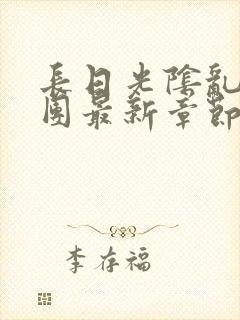 長日光陰亂
團最新章節
李存福